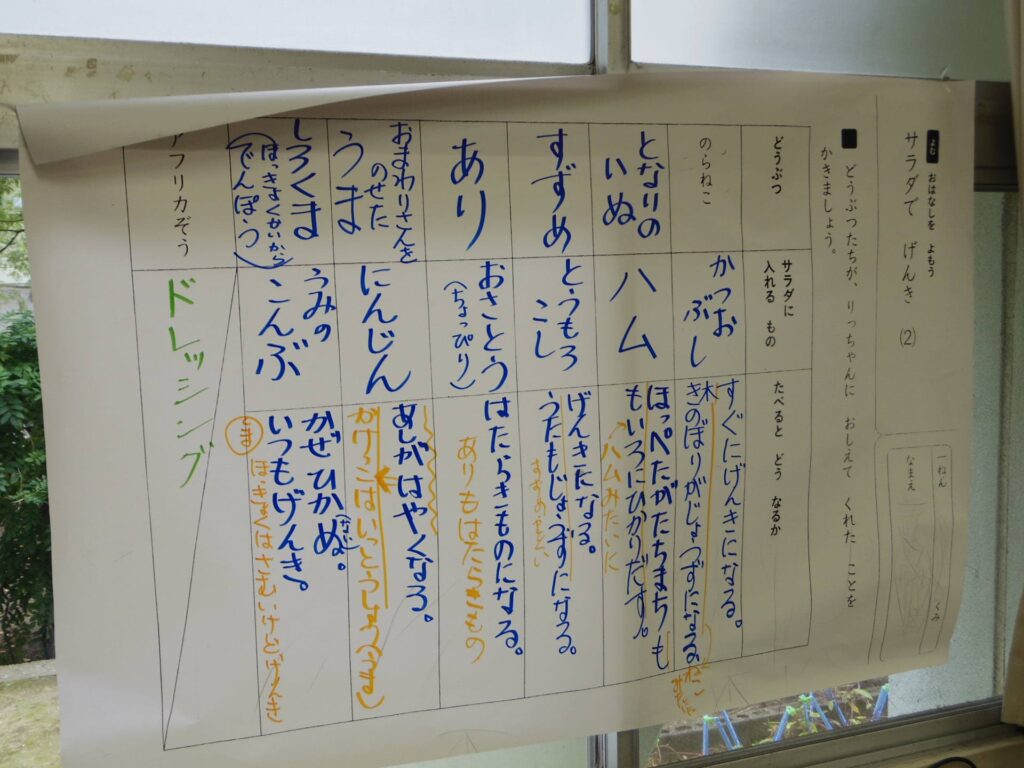 よむ おはなしを よもう
サラダで げんき (2)
一ねん くみ
なまえ
どうぶつたちが、りっちゃんに おしえて くれた ことを
かきましょう。
どうぶつ
サラダに
入れる もの
たべると どう なるか
のらねこ
かつお
ぶし
すぐにげんきになる。
木
きのぼりがじょうずになる
ねこ
となりの
いぬ
ハム
ほっぺたがたちまちも
ももいろにひかりだす。
ハムみたいに
すずめ
とうもろ
こし
げんきになる。
うたもじょうずになる。
あり
おさとう
(ちょっぴり)
はたらきものになる。
ありもはたらきもの
おまわりさんを
のせた
うま
にんじん
あしがはやくなる。
かけっこはいっとうしょう(うま)
しろくま
ほっきょくかいから
(でんぽう)
うみの
こんぶ
かぜひかぬ。
(ない)
いつもげんき。
ほっきょくはさむいけどげんき
アフリカぞう
ドレッシング